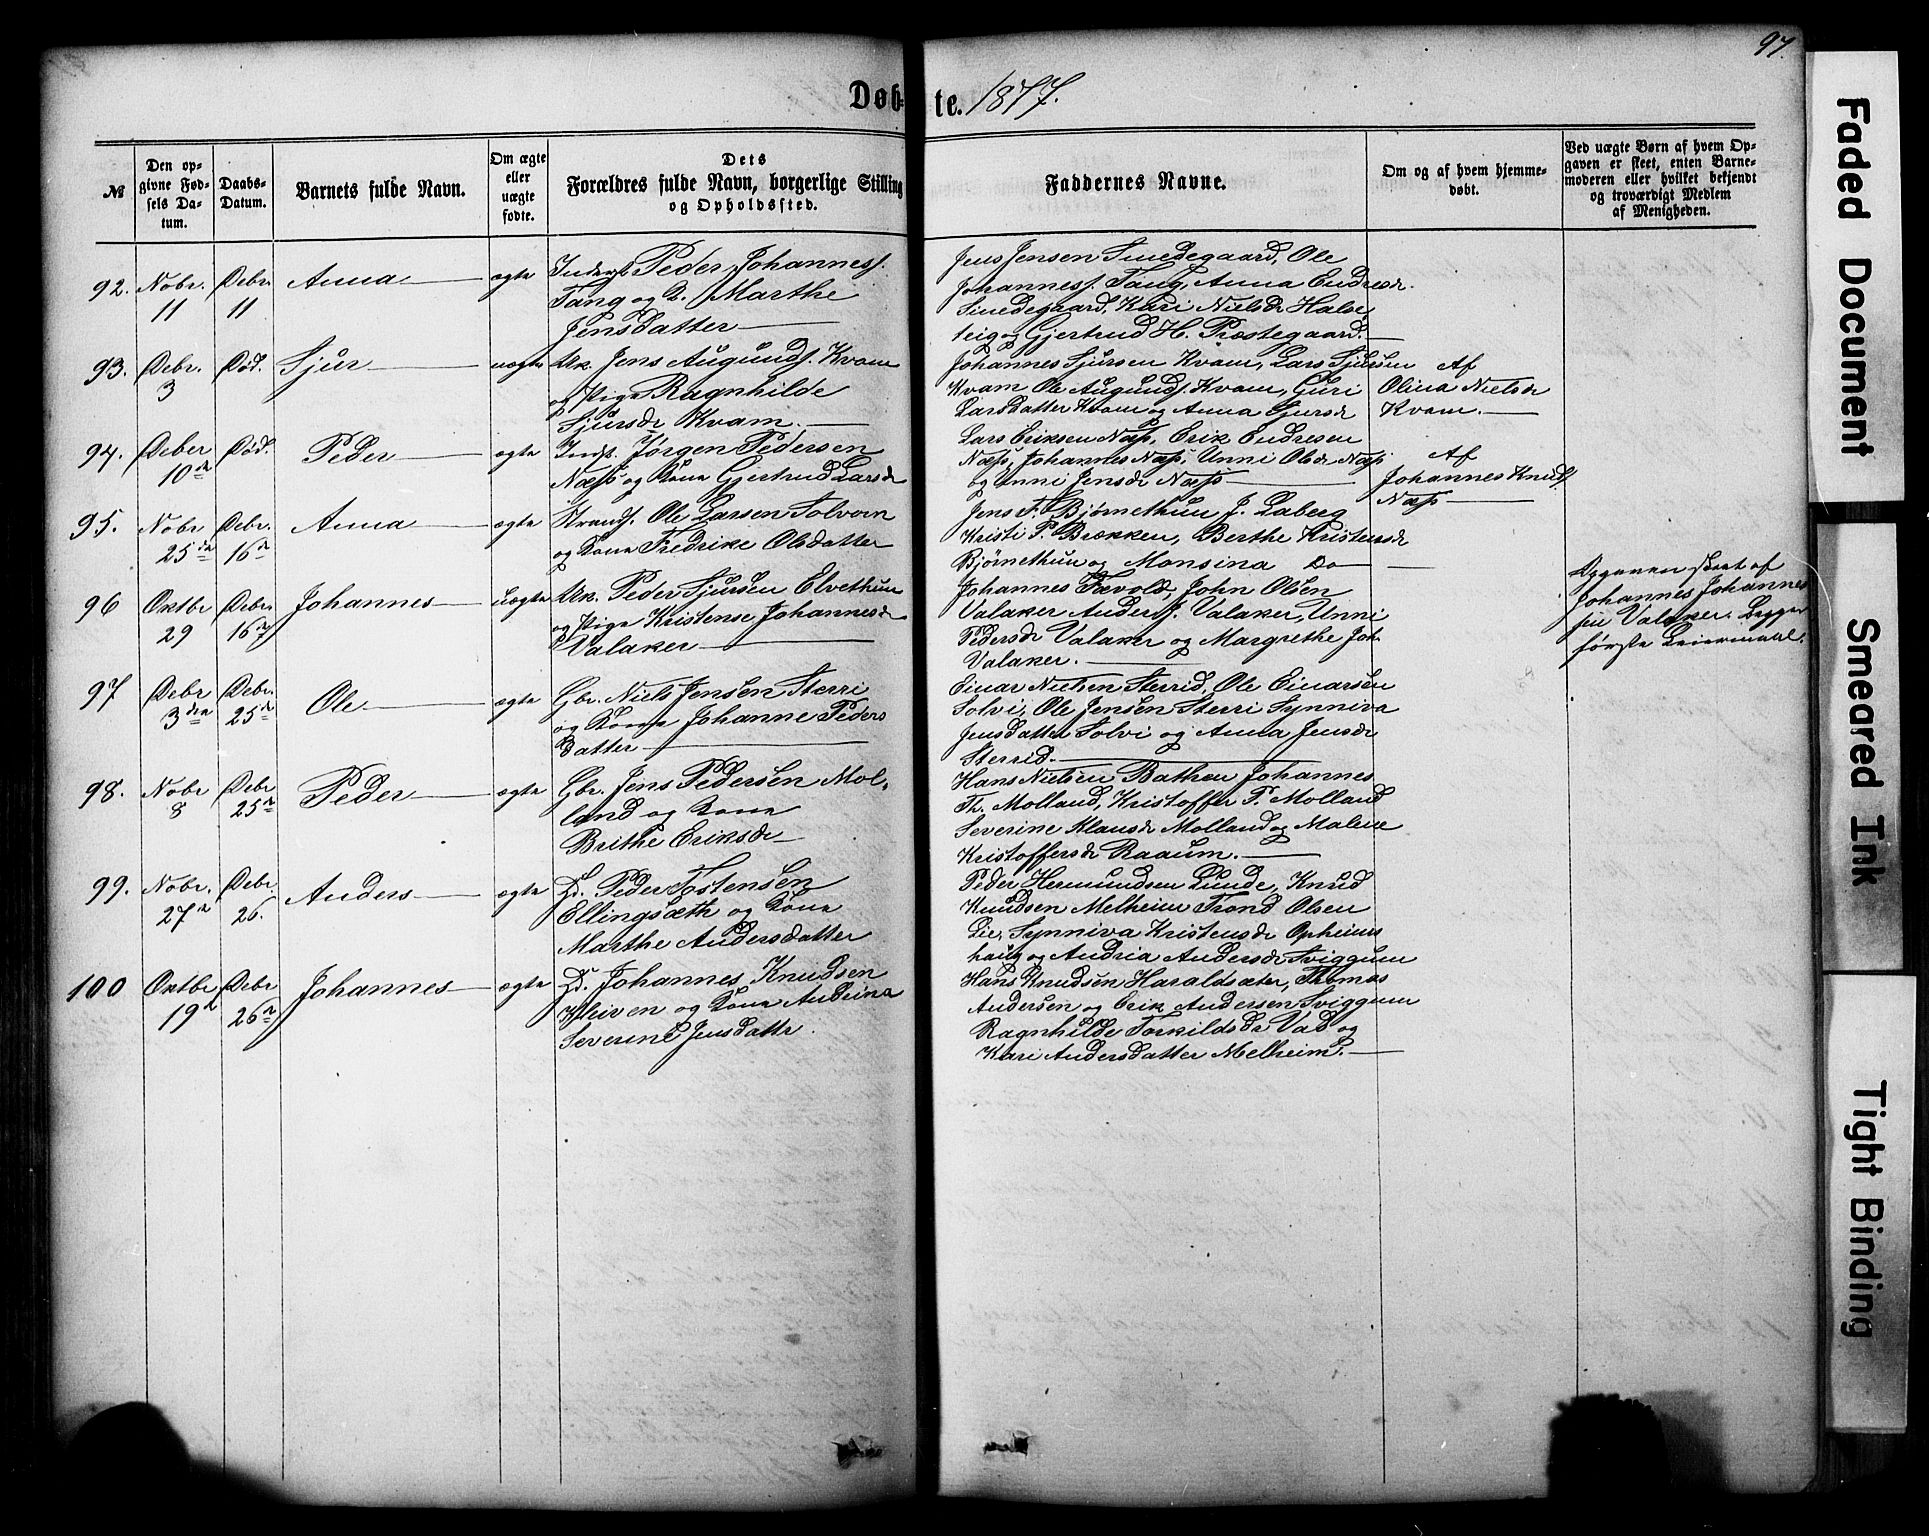 97.
Døb-
te. 1877.
№
Den op-
givne Fød-
sels Da-
tum.
Daabs-
Datum.
Barnets fulde Navn.
Om ægte
eller
uægte
fødte.
Dets
Forældres fulde Navn, borgerlige Stilling
og Opholdssted.
Faddernes Navne.
Om og af hvem hjemme-
døbt.
Ved uægte Børn af hvem Op-
gaven er skeet, enten Barne-
moderen eller hvilket bekjendt
og troværdigt Medlem
af Menigheden.
92. Nobr. 11 Debr. 11 Anna ægte
Inderst Peder Johanness.
Tang og K. Marthe
Jensdatter
Jens Jensen Smedegaard, Ole
Johanness. Tang, Anna Endresdr.
Smedegaard, Kari Nielsdr Halve
teig og Gjertrud H. Præstegaard.
93. Debr. 3 Død. Sjur uægte
Uk. Jens Augunds. Kvam
og Pige Ragnhilde
Sjursdr Kvam.
Johannes Sjursen Kvam, Lars Sjursen
Kvam Ole Augunds. Kvam, Guri
Larsdatter Kvam og Anna Sjursdr
Af
Olina Nielsdr
Kvam.
94. Deber 10de Død. Peder ægte
Indst. Jørgen Pedersen
Næss og Kone Gjertrud Larsdr
Lars Eriksen Næss, Erik Endresen
Næss, Johannes Næss, Unni Olsdr Næss
og Unni Jensdr Næss
Af
Johannes Knuds.
Næss
95. Nobr 25de Debr. 16de Anna ægte
Strands. Ole Larsen Solvorn
og Kone Fredrike Olsdatter
Jens F. Bjørnethun J. Laberg
Kristi P. Brækken, Berthe Kristensdr
Bjørnethun og Monsina Do
96 Oktbr 29 Debr. 16de Johannes uægte
Uk. Peder Sjursen Elvethun
og Pige Kristense Johannesdr
Valaker
Johannes Fævold, John Olsen
Valaker Anders J. Valaker, Unni
Pedersdr Valaker og Margrethe Joh.
Valaker.
Opgaven skeet af
Johannes Johannes
sen Valaker. Begges
første Leiermaal.
97 Debr 3die Debr. 25de Ole ægte
Gbr. Niels Jensen Sterri
og Kone Johanne Peders
datter
Einar Nielsen Sterrid, Ole Einarsen
Solvi, Ole Jensen Sterri Synniva
Jensdatter Solvi og Anna Jensdr
Sterrid.
98. Nobr 8 Debr 25de Peder ægte
Gbr. Jens Pedersen Mol-
land og Kone
Brithe Eriksdr
Hans Nielsen Bathen Johannes
Th. Molland, Kristoffer P. Molland
Severine Klausdr Molland og Malene
Kristoffersdr Raaum.
99. Nobr. 27de Debr. 26. Anders ægte
Ld. Peder Tostensen
Ellingsæth og Kone
Marthe Andersdatter
Peder Hermundsen Lunde, Knud
Knudsen Melheim Trond Olsen
Lie, Synniva Kristensdr Opheims
haug og Andria Andersdr Sviggum
100 Oktbr 19de Debr 26de Johannes ægte
Ld. Johannes Knudsen
Kleiven og Kone Andrina
Severine Jensdattr.
Hans Knudsen Haraldsæter, Thomas
Andersen og Erik Andersen Sviggum
Ragnhilde Torkildsdr Vad og
Kari Andersdatter Melheim.
Faded Document
Smeared Ink
Tight Binding